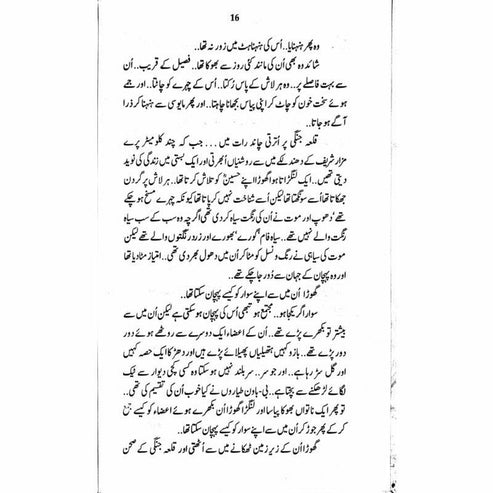 16
وہ پھر ہنہنایا.. اُس کی ہنہناہٹ میں زور نہ تھا..
شائد وہ بھی اُن کی مانند کئی روز سے بھوکا تھا.. فصیل کے قریب.. اُن
سے بہت فاصلے پر.. وہ ہر لاش کے پاس رُکتا.. اُس کے چہرے کو چاٹتا.. اور جمے
ہوئے سخت خون کو چاٹ کر اپنی پیاس بجھانا چاہتا.. اور پھر مایوسی سے ہنہنا کر ذرا
آگے ہو جاتا..
قلعہ جنگی پر اُترتی چاند رات میں ... جب کہ چند کلومیٹر پرے
مزار شریف کے دھندلکے میں سے روشنیاں اُبھرتی اور ایک بہتی میں زندگی کی نوید
دیتی تھیں.. ایک لنگڑاتا ہوا گھوڑا اپنے حسینؓ کو تلاش کرتا تھا.. ہر لاش پر گردن
جھکاتا تھا اُسے سونگھتا تھا لیکن اُسے شناخت نہیں کر پاتا تھا کیونکہ چہرے مسخ ہو چکے
تھے، دھوپ اور موت نے اُن کی رنگت سیاہ کر دی تھی اگرچہ وہ سب کے سب سیاہ
رنگت والے نہیں تھے.. سیاہ فام، گورے، بھورے اور زرد رنگتوں والے تھے لیکن
موت کی سیاہی نے رنگ و نسل کو مٹا کر اُن میں دھول بھر دی تھی.. امتیاز مٹا دیا تھا
اور وہ پہچان کے جہان سے دُور جا چکے تھے..
گھوڑا اُن میں سے اپنے سوار کو کیسے پہچان سکتا تھا..
سوار اگر یکجا ہو.. مجتمع ہو تبھی اُس کی پہچان ہو سکتی ہے لیکن اُن میں سے
بیشتر تو بکھرے پڑے تھے.. اُن کے اعضاء ایک دوسرے سے روٹھے ہوئے دور
دور پڑے تھے.. بازو کہیں ہتھیلیاں پھیلائے پڑے ہیں اور دھڑ کا ایک حصہ کہیں
اور گل سڑ رہا ہے.. اور جو سر.. سربلند نہیں ہو سکتا وہ کسی کچی دیوار سے ٹیک
لگائے لڑھکنے سے بچتا ہے.. بی-باون طیاروں نے کیا خوب اُن کی تقسیم کی تھی..
تو پھر ایک ناتواں بھوکا پیاسا اور لنگڑا گھوڑا اُن بکھرے ہوئے اعضاء کو کیسے جمع
کر کے پھر جوڑ کر اُن میں سے اپنے سوار کو کیسے پہچان سکتا تھا..
گھوڑا اُن کے زیر زمین ٹھکانے میں سے اُٹھتی اور قلعہ جنگی کے صحن